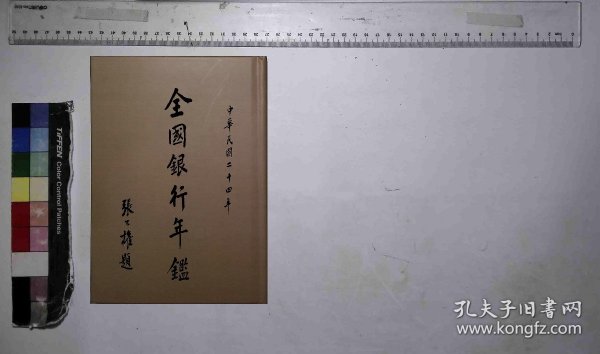 中華民國二十四年
全國銀行年鑑
張公權題
TIFFEN Color Control Patches
孔夫子旧书网
www.kongfz.com